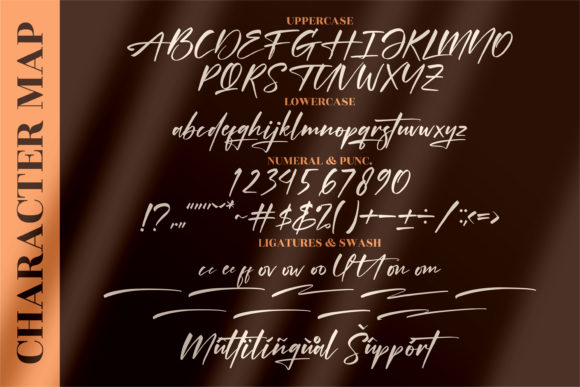 CHARACTER MAP
UPPERCASE
ABCDEFGHIJKLMNO
PQRSTUVWXYZ
LOWERCASE
abcdefghijklmnopqrstuvwxyz
NUMERAL & PUNC.
1234567890
!?,.""''""~*~#$&%()+-=±÷/:;<=>
LIGATURES & SWASH
cc ee ff ov ow oo Ut tt on om
Multilingual Support